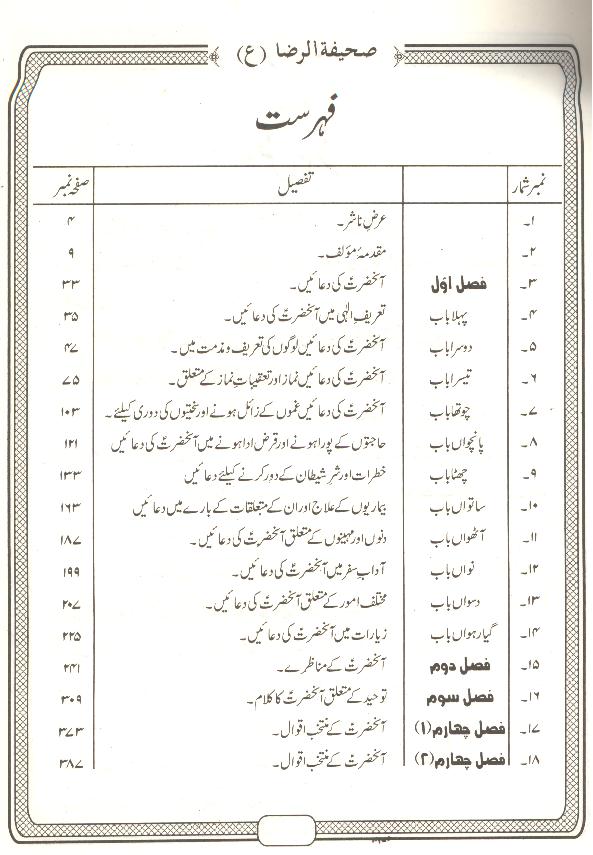 صحیفۃ الرضا (ع)
فہرست
نمبرشمار تفصیل صفحہ نمبر
۱۔ عرضِ ناشر۔ ۴
۲۔ مقدمۂ مؤلف۔ ۹
۳۔ فصل اوّل آنحضرتؑ کی دعائیں۔ ۳۳
۴۔ پہلا باب تعریفِ الٰہی میں آنحضرتؑ کی دعائیں۔ ۳۵
۵۔ دوسرا باب آنحضرتؑ کی دعائیں لوگوں کی تعریف و مذمت میں۔ ۴۷
۶۔ تیسرا باب آنحضرتؑ کی دعائیں نماز اور تعقیباتِ نماز کے متعلق۔ ۷۵
۷۔ چوتھا باب آنحضرتؑ کی دعائیں غموں کے زائل ہونے اور سختیوں کی دوری کیلئے۔ ۱۰۳
۸۔ پانچواں باب حاجتوں کے پورا ہونے اور قرض ادا ہونے میں آنحضرتؑ کی دعائیں ۱۲۱
۹۔ چھٹا باب خطرات اور شر شیطان کے دور کرنے کیلئے دعائیں ۱۳۳
۱۰۔ ساتواں باب بیماریوں کے علاج اور ان کے متعلقات کے بارے میں دعائیں ۱۶۳
۱۱۔ آٹھواں باب دنوں اور مہینوں کے متعلق آنحضرتؑ کی دعائیں۔ ۱۸۷
۱۲۔ نواں باب آدابِ سفر میں آنحضرتؑ کی دعائیں۔ ۱۹۹
۱۳۔ دسواں باب مختلف امور کے متعلق آنحضرتؑ کی دعائیں۔ ۲۰۷
۱۴۔ گیارہواں باب زیارات میں آنحضرتؑ کی دعائیں۔ ۲۲۵
۱۵۔ فصل دوم آنحضرتؑ کے مناظرے۔ ۲۴۱
۱۶۔ فصل سوم توحید کے متعلق آنحضرتؑ کا کلام۔ ۳۰۹
۱۷۔ فصل چهارم(۱) آنحضرتؑ کے منتخب اقوال۔ ۳۷۳
۱۸۔ فصل چهارم(۲) آنحضرتؑ کے منتخب اقوال۔ ۳۸۷